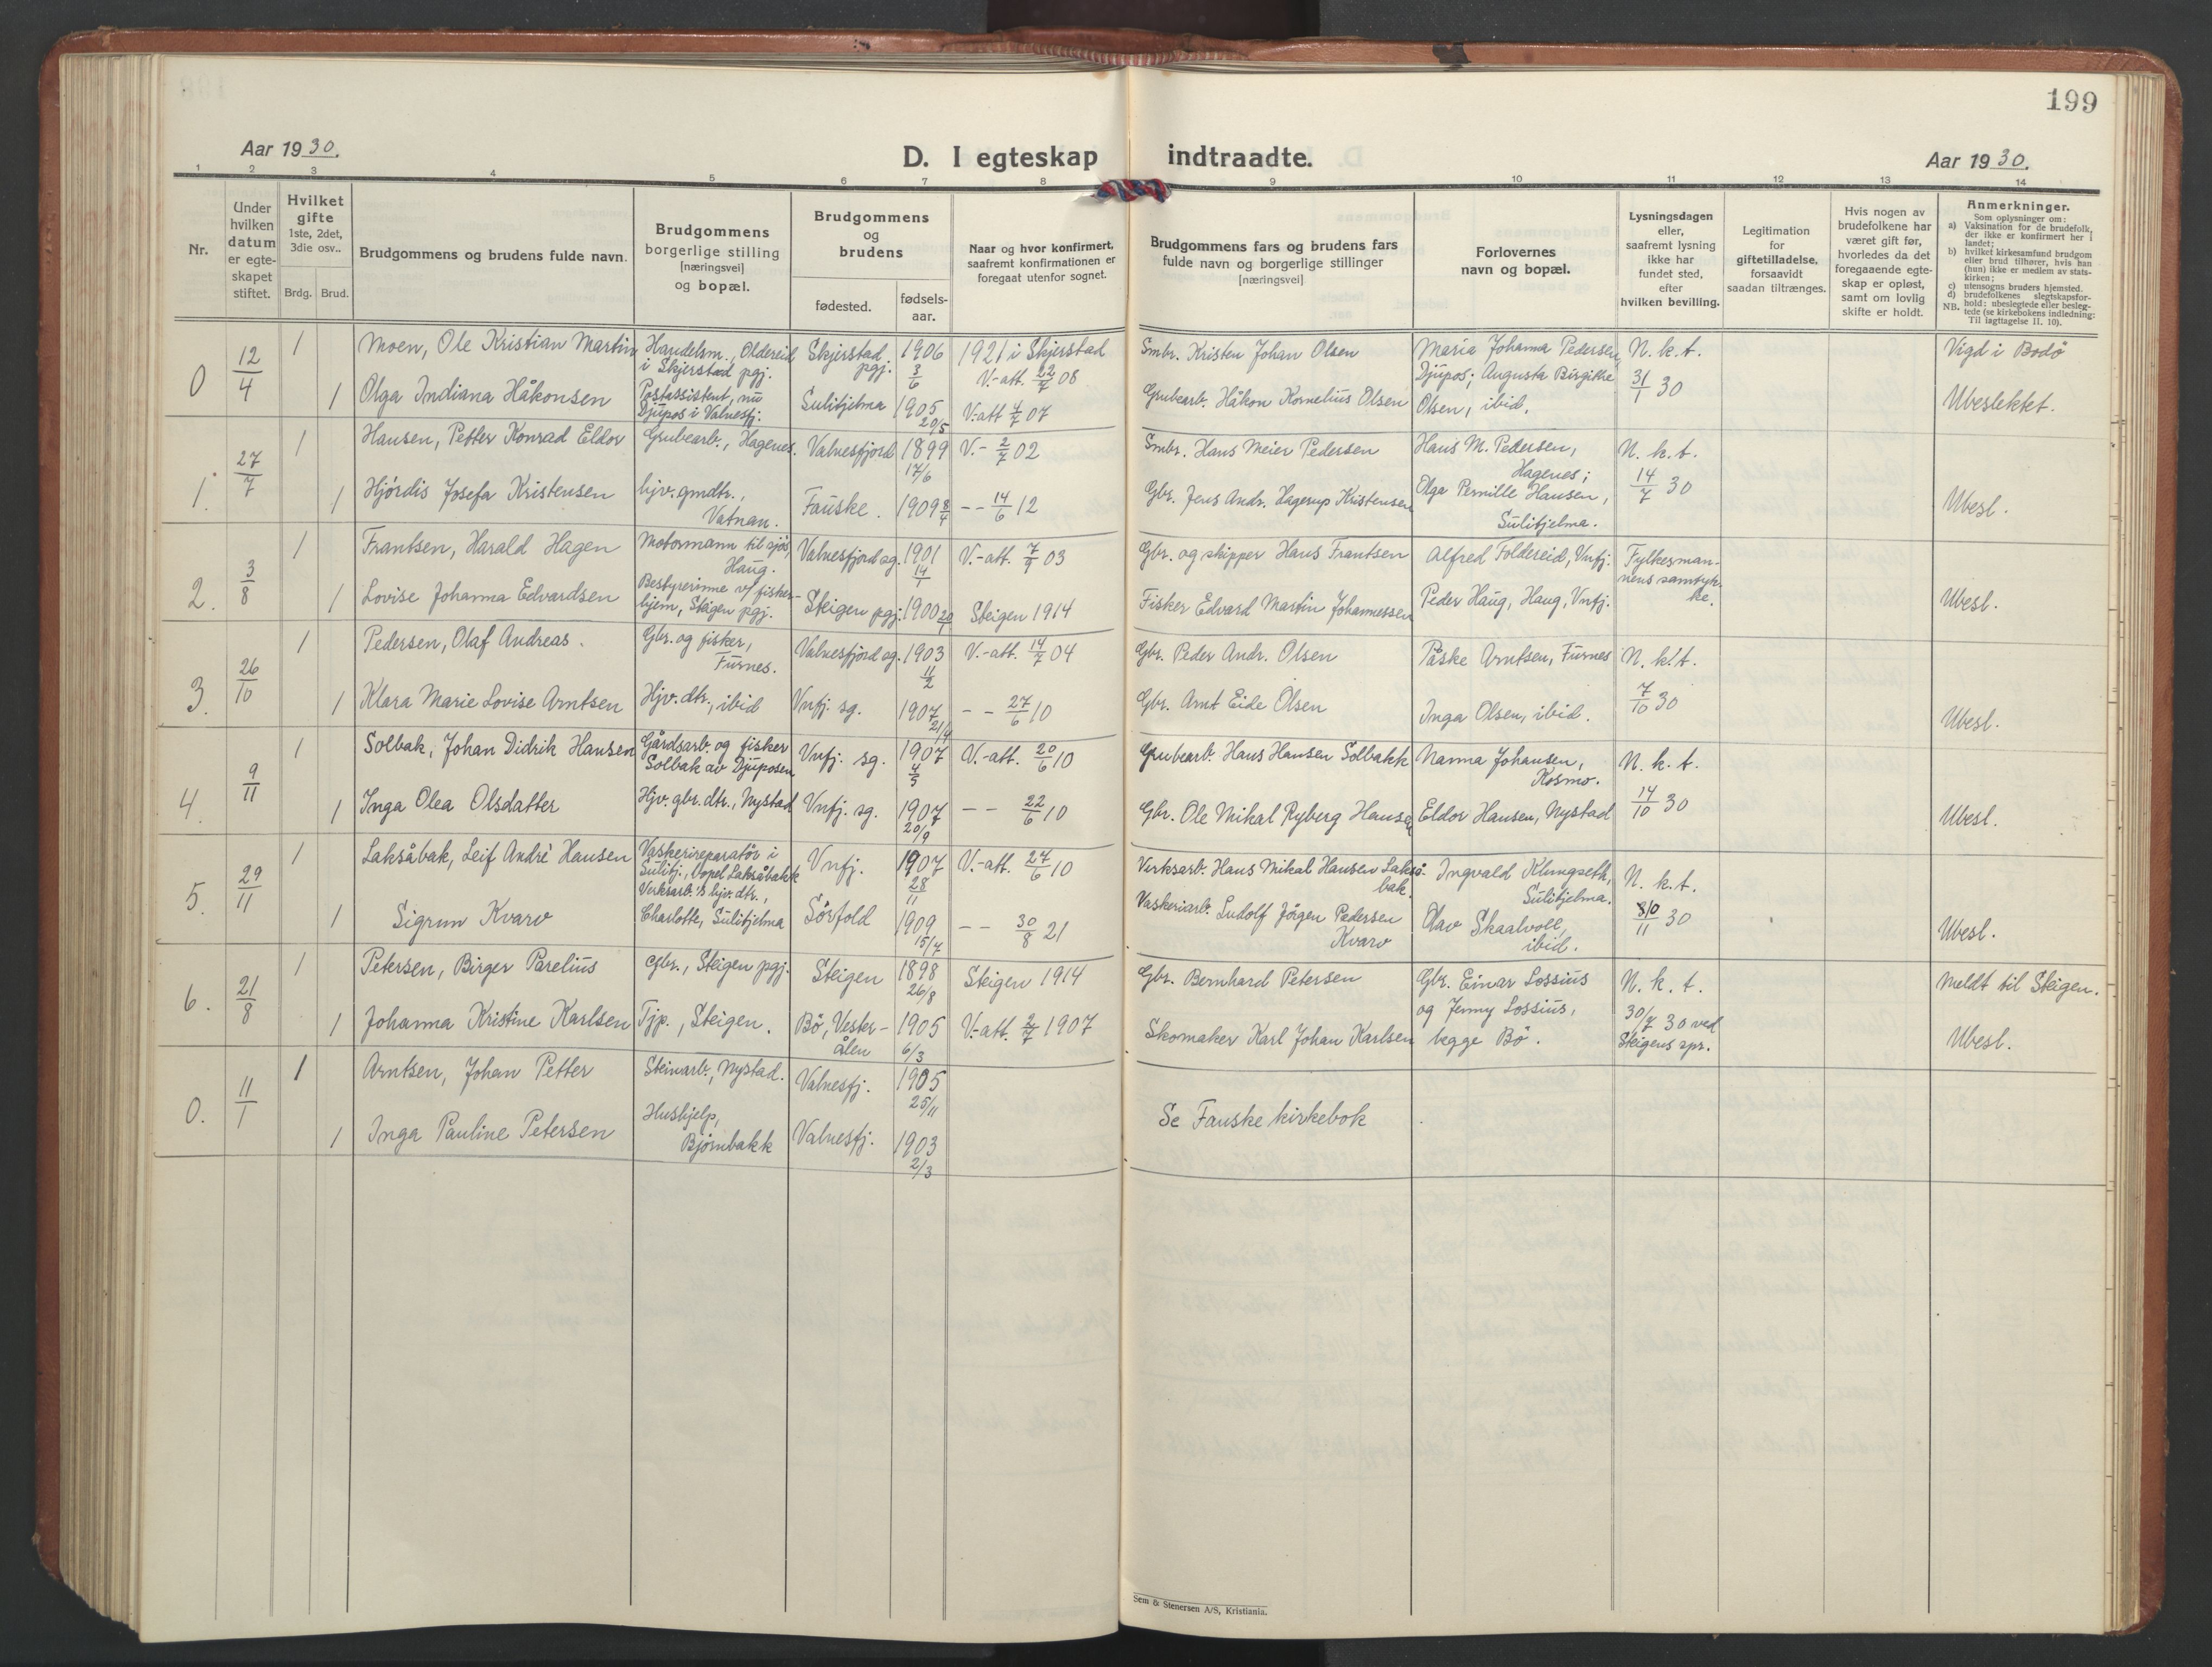 199
Aar 1930.
D. I egteskap indtraadte.
Aar 1930.
1 2 3 4 5 6 7 8 9 10 11 12 13 14
Nr.
Under hvilken datum er egteskapet stiftet.
Hvilket gifte 1ste, 2det, 3die osv..
Brdg. Brud.
Brudgommens og brudens fulde navn.
Brudgommens borgerlige stilling [næringsvei] og bopæl.
Brudgommens og brudens
fødested.
fødsels-aar.
Naar og hvor konfirmert, saafremt konfirmationen er foregaat utenfor sognet.
Brudgommens fars og brudens fars fulde navn og borgerlige stillinger [næringsvei]
Forlovernes navn og bopæl.
Lysningsdagen eller, saafremt lysning ikke har fundet sted, efter hvilken bevilling.
Legitimation for giftetilladelse, forsaavidt saadan tiltrænges.
Hvis nogen av brudefolkene har været gift før, hvorledes da det foregaaende egteskap er opløst, samt om lovlig skifte er holdt.
Anmerkninger.
Som oplysninger om:
a) Vaksination for de brudefolk, der ikke er konfirmert her i landet;
b) hvilket kirkesamfund brudgom eller brud tilhører, hvis han (hun) ikke er medlem av statskirken;
c) utensogns bruders hjemsted.
d) brudefolkenes slegtskapsforhold: ubeslegtede eller beslegtede (se kirkebokens indledning:
NB. Til iagttagelse II. 10).
0 12/4 1 Moen, Ole Kristian Martin
Handelsm., Oldereid i Skjerstad pgj.
Skjerstad pgj. 1906 3/6
1921 i Skjerstad
V.-att. 22/7 08
Smbr. Kristen Johan Olsen
Maria Johanna Pedersen, Djupos; Augusta Birgitte Olsen, ibid.
N. k. t. 31/1 30
Vigd i Bodø
1 Olga Indiana Håkonsen
Postassistent, nu Djupos i Valnesfj.
Sulitjelma 1905 20/5
V-att 4/7 07
Grubearb. Håkon Kornelius Olsen
Ubeslektet.
1. 27/7 1 Hansen, Petter Konrad Eldor
Grubearb., Hagenes.
Valnesfjord 1899 17/6
V.- 2/7 02
Smbr. Hans Meier Pedersen
Hans M. Pedersen, Hagenes;
N. k. t. 14/7 30
1 Hjørdis Josefa Kristensen
hjv. gmdtr., Vatnan.
Fauske. 1909 8/4
- - 14/6 12
Gbr. Jens Andr. Hagerup Kristensen
Olga Pernille Hansen, Sulitjelma.
Ubesl.
2. 3/8 1 Frantsen, Harald Hagen
Motormann til sjøs, Haug.
Valnesfjord sg. 1901 14/1
V.-att. 7/9 03
Gbr. og skipper Hans Frantsen
Alfred Foldereid, Vnfj.
Fylkesmannens samtykke.
1 Lovise Johanna Edvardsen
Bestyrerinne v/ fiskerhjem, Steigen pgj.
Steigen pgj. 1900 20/9
Steigen 1914
Fisker Edvard Martin Johannessen
Peder Haug, Haug, Vnfj.
Ubesl.
3. 26/10 1 Pedersen, Olaf Andreas.
Gbr. og fisker, Furnes.
Valnesfjord sg. 1903 11/2
V.-att. 14/7 04
Gbr. Peder Andr. Olsen
Påske Arntsen, Furnes
N. k. t. 7/10 30
1 Klara Marie Lovise Arntsen
Hjv. dtr., ibid
Vnfj. sg. 1907 21/4
- - 27/6 10
Gbr. Arnt Eide Olsen
Inga Olsen, ibid.
Ubesl.
4. 9/11 1 Solbak, Johan Didrik Hansen
Gårdsarb. og fisker Solbak av Djuposen
Vnfj. sg. 1907 4/5
V.-att. 20/6 10
Grubearb. Hans Hansen Solbakk
Nanna Johansen, Kosmo.
N. k. t. 14/10 30
1 Inga Olea Olsdatter
Hjv. gbr. dtr., Nystad
Vnfj. sg. 1907 20/9
- - 22/6 10
Gbr. Ole Mikal Ryberg Hansen
Eldor Hansen, Nystad
Ubesl.
5. 29/11 1 Laksåbak, Leif André Hansen
Vaskerireparatør i Sulitj., Bopel Laksåbakk
Vnfj. 1907 28/11
V.-att. 27/6 10
Verksarb. Hans Mikal Hansen Laksåbak.
Ingvald Klungseth, Sulitjelma.
N. k. t. 8/11 30
1 Sigrun Kvarv
Verksarb.'s hjv. dtr., Charlotte, Sulitjelma
Sørfold 1909 15/7
- - 30/8 21
Vaskeriarb. Ludolf Jörgen Pedersen Kvarv
Olav Skaalvoll, ibid.
Ubesl.
6. 21/8 1 Petersen, Birger Parelius
Gbr., Steigen pgj.
Steigen 1898 26/8
Steigen 1914
Gbr. Bernhard Petersen
Gbr. Einar Lossius og Jenny Lossius, begge Bö.
N. k. t. 30/7 30 ved Steigens spr.
Meldt til Steigen.
1 Johanna Kristine Karlsen
Tjp., Steigen.
Bö, Vesterålen 1905 6/3
V.-att. 2/7 1907
Skomaker Karl Johan Karlsen
Ubesl.
0. 11/1 1 Arntsen, Johan Petter
Steinarb., Nystad.
Valnesfj. 1905 25/11
1 Inga Pauline Petersen
Hushjelp, Bjørnbakk
Valnesfj. 1903 2/3
Se Fauske kirkebok
Sem & Stenersen A/S, Kristiania.